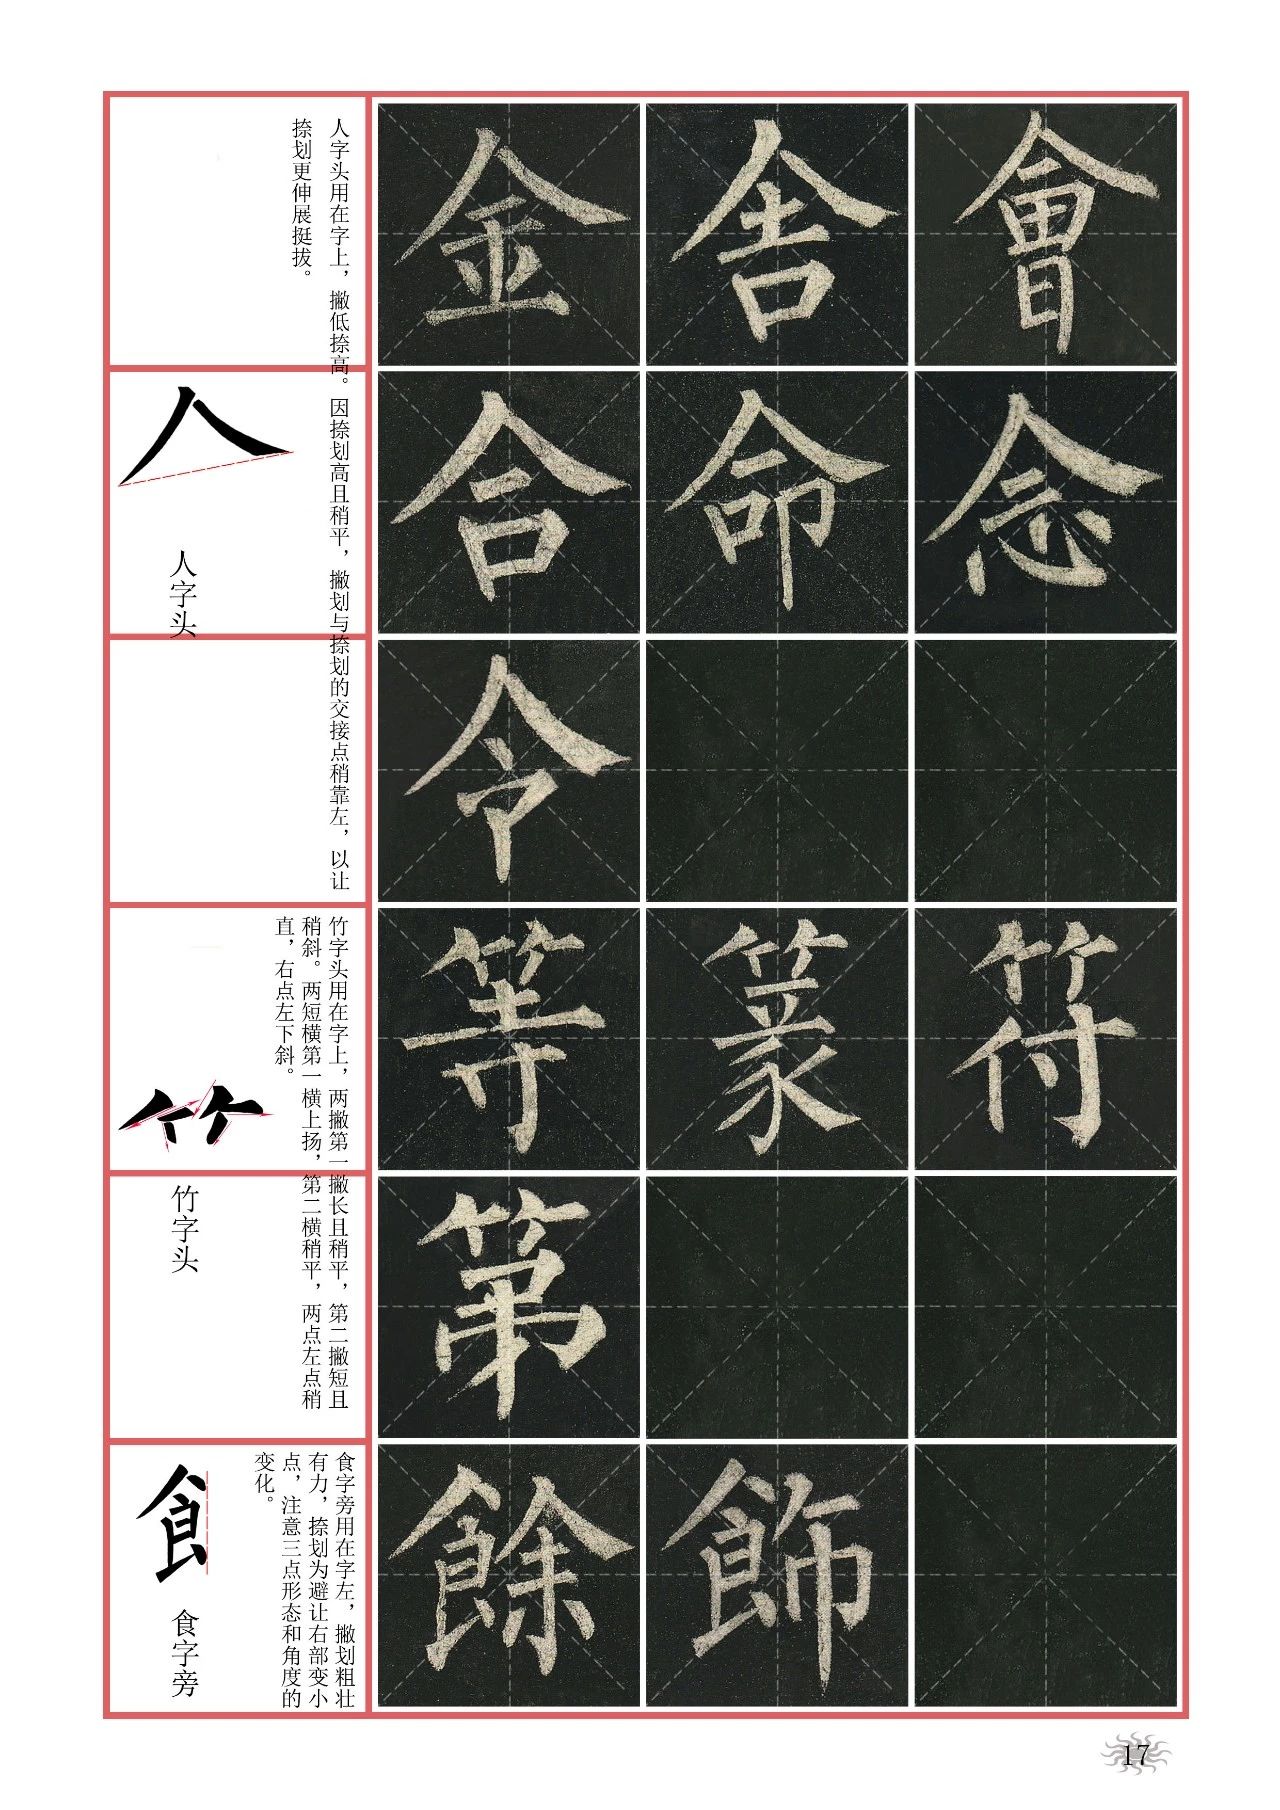 人字头用在字上，撇低捺高。因捺划高且稍平，撇划与捺划的交接点稍靠左，以让
捺划更伸展挺拔。
人
人字头
金舍會
合命念
令
竹字头用在字上，两撇第一撇长且稍平，第二撇短且
稍斜。两短横第一横上扬，第二横稍平，两点左点稍
直，右点左下斜。
竹字头
等篆符
第
食字旁用在字左，撇划粗壮
有力，捺划为避让右部变小
点，注意三点形态和角度的
变化。
食字旁
餘飾
17